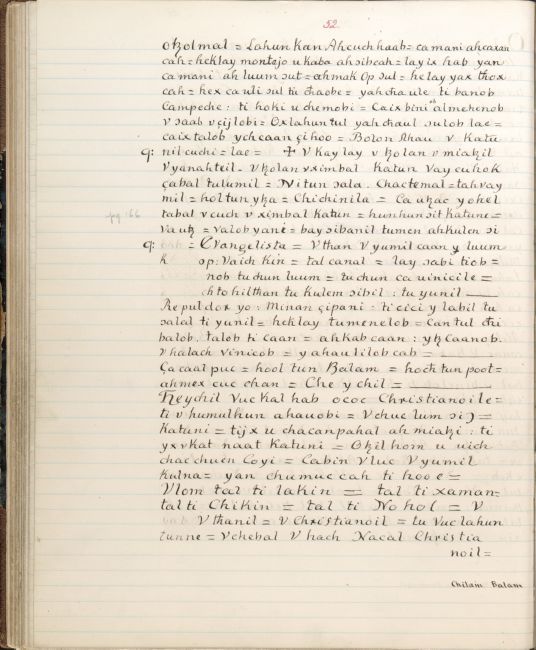 52
otzolmal = Lahun Kan Ahcuch haab = ca mani ah caxan
cah = heklay montejo u kaba ah sibcah = lay ix hab yan
ca mani ah luum sut = ahmak Op sul = he lay yax thox
cah = hex ca uli sul tu chaobe = yah chaule ti banob
Campeche : ti hoki u chemobi = Caix bini almehenob
v saab v çijlobi = Oxlahun tul yah chaul sulob lae =
caix talob ychcaan çihoo = Bolon Ahau v Katu
q: nil cuchi = lae = + V Kay lay v tzolan v miatzil
Vyanahteil. Vtzolan v ximbal Katun Vay cuhok
çabal tulumil = Ni tun sala. Chactemal = tah vay
mil = hol tun ytza = Chichinila = Ca utzac y ohel
pg. 166 tabal v cuch v ximbal Katun = hunhunsit Katune =
Va utz = valob yané = bay sibanil tumen ahkulen si
q: = Evangelista = V than V yumil caan y luum
k op: Vaich Kin = tal canal = lay sabi tiob =
nob tuchun luum = tuchun ca uinicile =
ch to hilthan tu Kulem sibil : tu yunil
Repuldox yo : Minan çipani = ti cici y labil tu
salal ti yunil = heklay tumenelob = Can tul chi
balob. talob ti caan = ah kab caan : ytz Caanob.
v halach vinicob = yahaulilob cab =
Çacaal puc = hool tun Balam = hoch tun poot =
ahmex cuc chan = Che y chil =
Heychil Vuc kal hab ococ Christianoile =
ti v humulhun ahauobi = V chuc lum si) =
Katuni = tijx u chacanpahal ah miatzi : ti
yx v kat naat Katuni = Otzil hom u uich
chac chuen Coyi = Cabin V luc V yumil
Kulna = yan chumuc cah ti hooe =
Vlom tal ti lakin = tal ti xaman =
tal ti Chikin = tal ti Nohol = V
V thanil = V Christianoil = tu Vuc lahun
tunne = V chebal V hach Nacal Christia
noil =
Chilam Balam